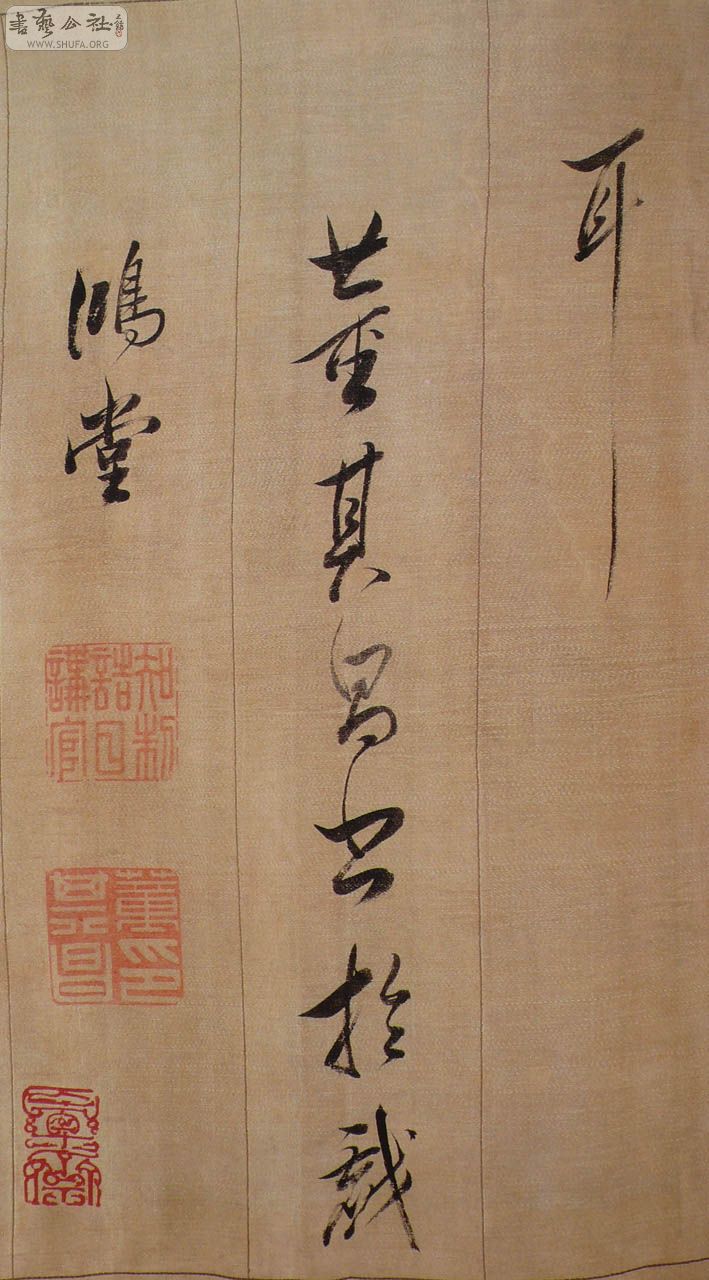 耳
董其昌書於戲
鴻堂
知制誥日講官
董其昌印
書藝公社
WWW.SHUFA.ORG